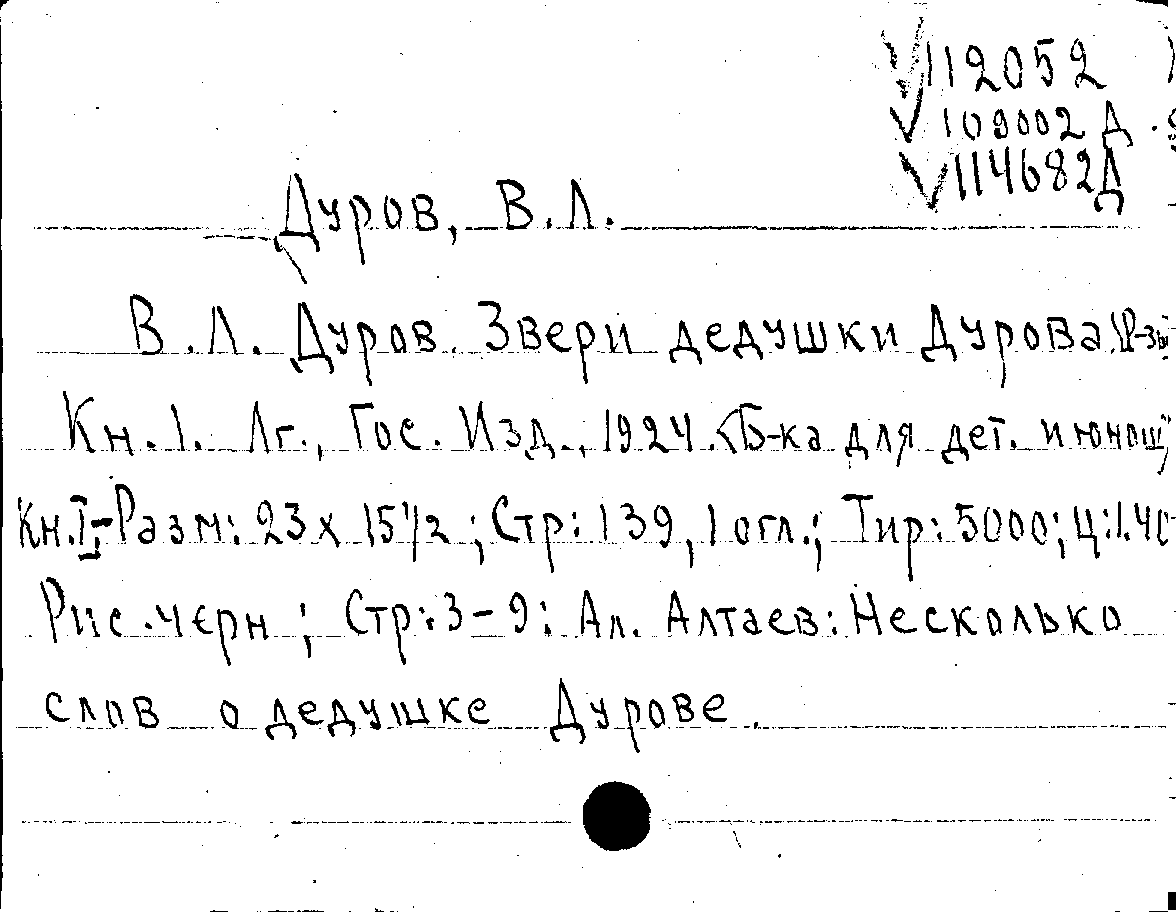 112052
109002 Д
114682Д
Дуров, В.Л.
В.Л. Дуров. Звери дедушки Дурова. Р-зы
Кн.1. Лг., Гос. Изд., 1924. <Б-ка для дет. и юнош,
Кн.I-Разм: 23 x 15 1/2 ; Стр: 139, 1 огл.; Тир: 5000; Ц:1.40
Рис.черн ; Стр:3-9: Ал. Алтаев: Несколько
слов о дедушке Дурове.